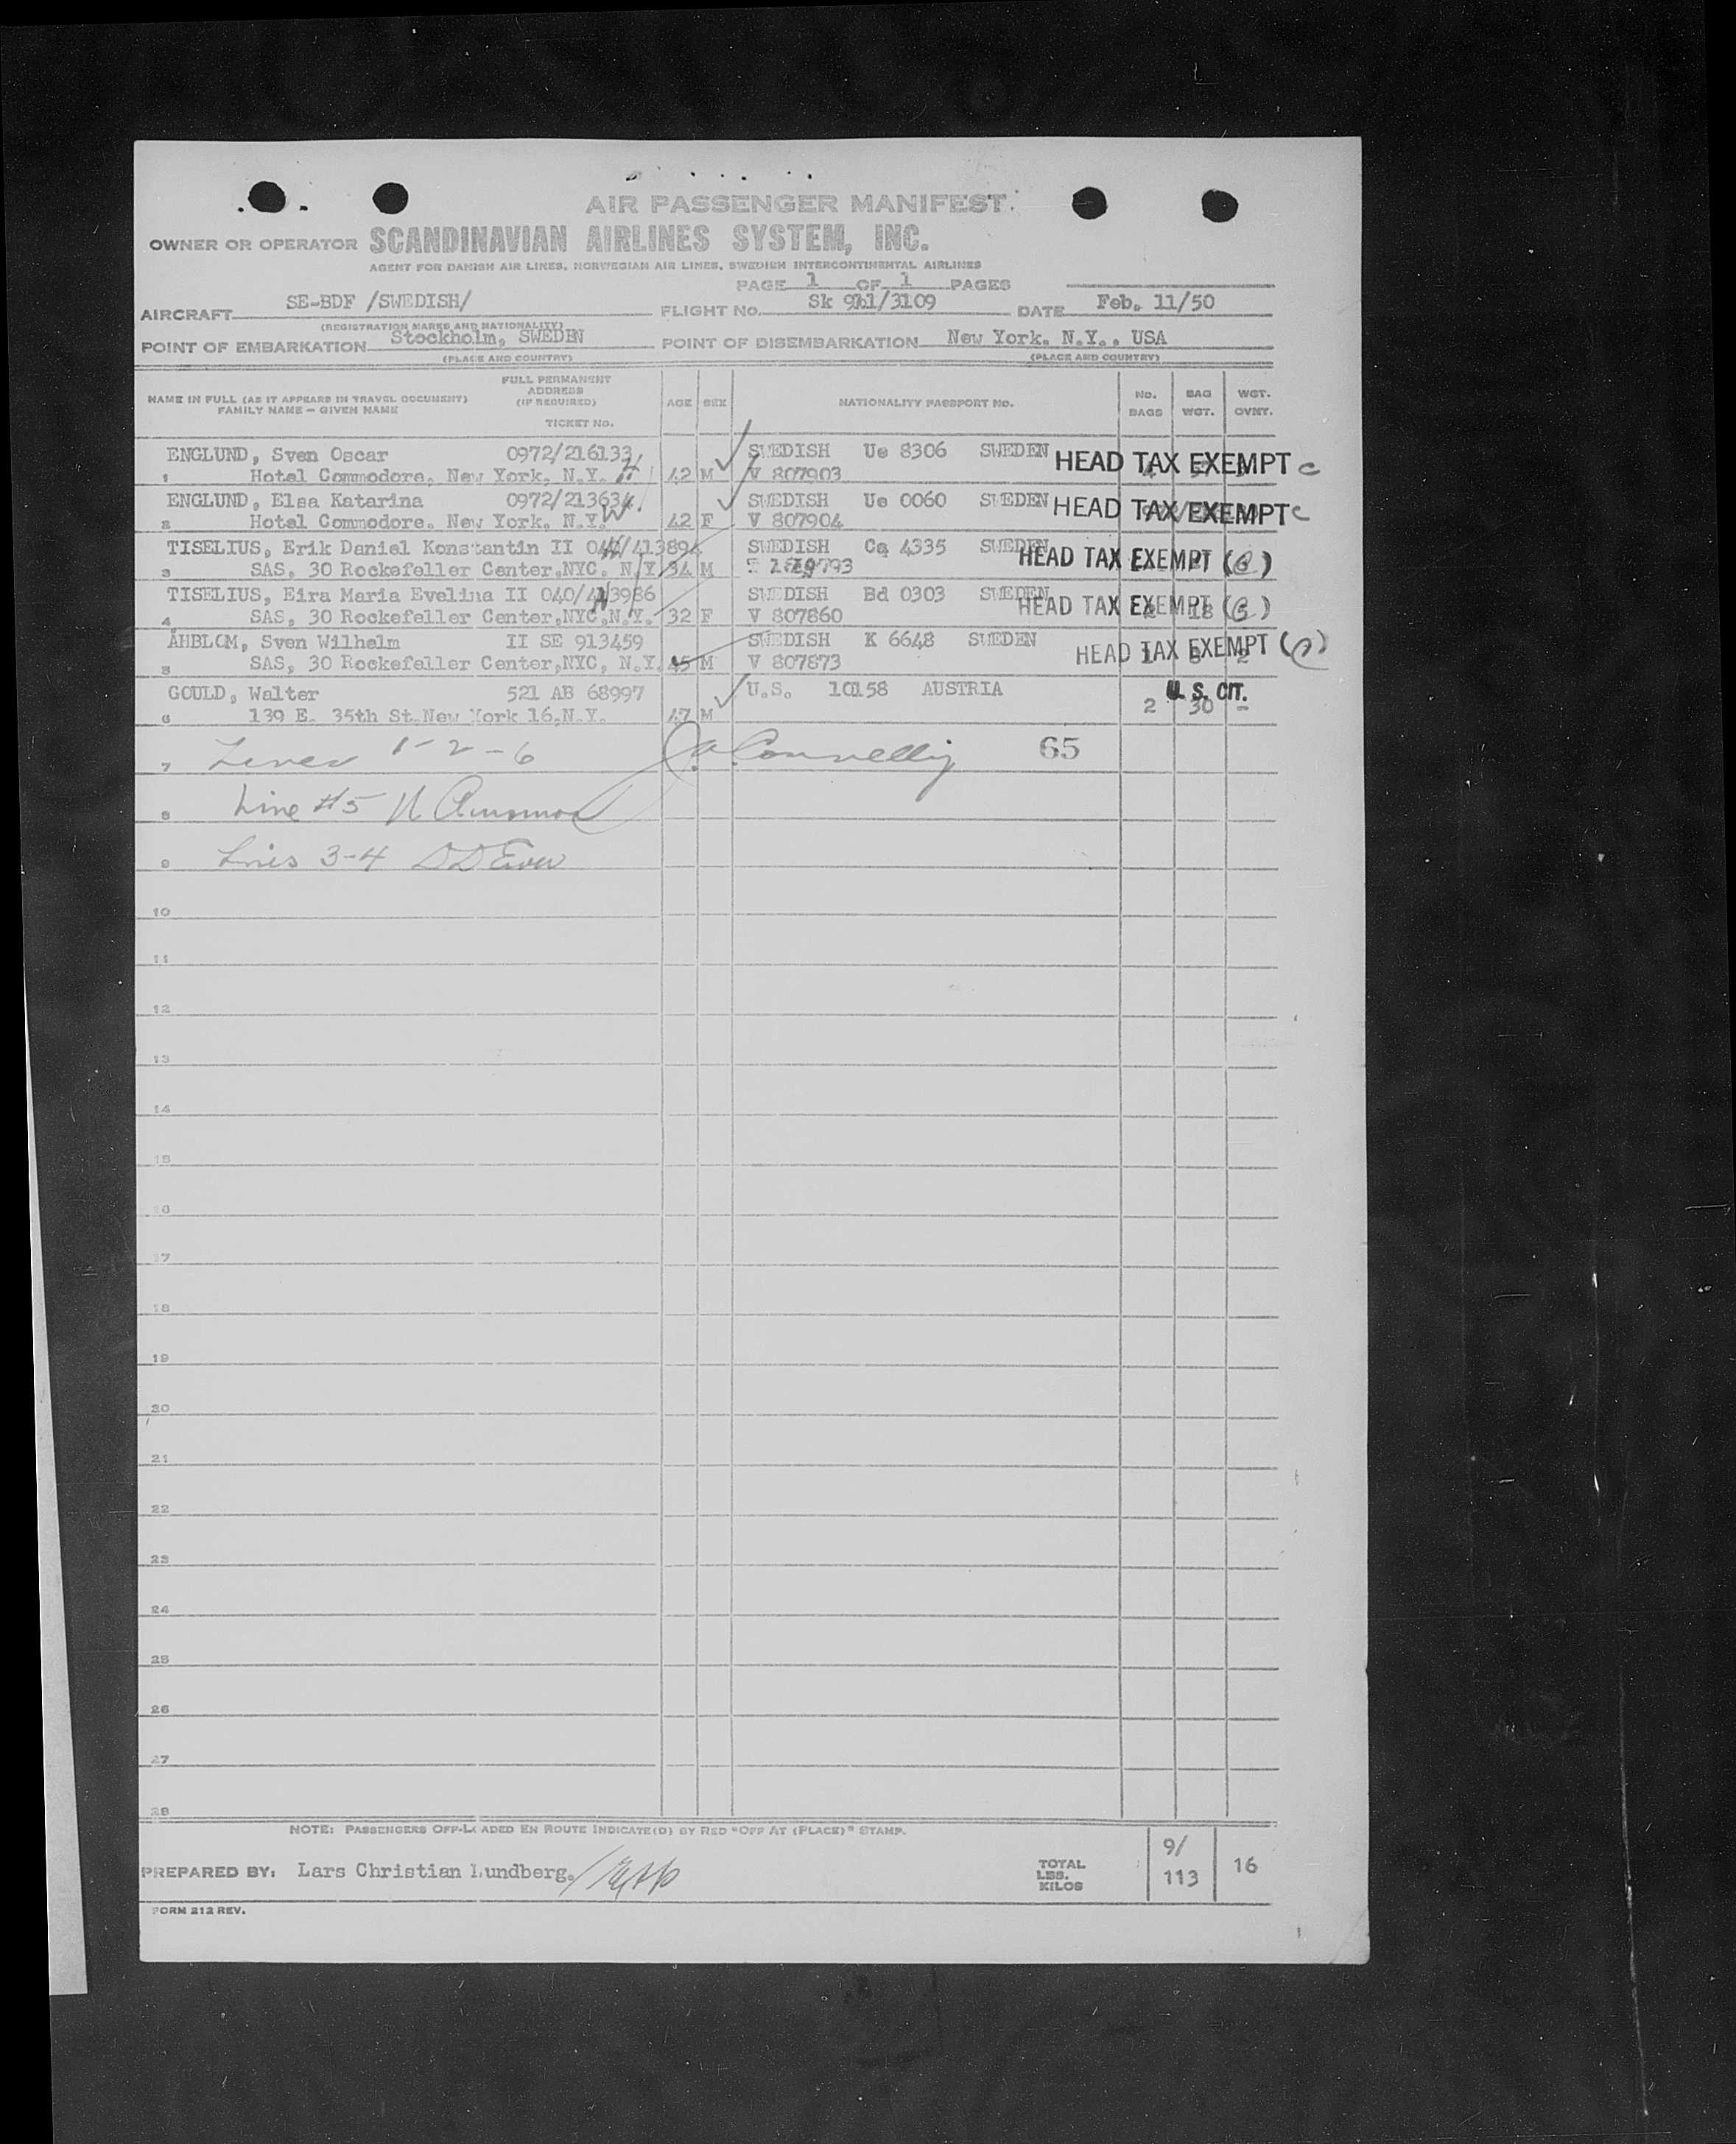 AIR PASSENGER MANIFEST
OWNER OR OPERATOR SCANDINAVIAN AIRLINES SYSTEM, INC.
AGENT FOR DANISH AIR LINES, NORWEGIAN AIR LINES, SWEDISH INTERCONTINENTAL AIRLINES
PAGE 1 OF 1 PAGES
AIRCRAFT SE-BDF /SWEDISH/ FLIGHT NO. Sk 911/3109 DATE Feb. 11/50
(REGISTRATION MARKS AND NATIONALITY)
POINT OF EMBARKATION Stockholm, SWEDEN POINT OF DISEMBARKATION New York. N.Y., USA
(PLACE AND COUNTRY) (PLACE AND COUNTRY)
NAME IN FULL (AS IT APPEARS IN TRAVEL DOCUMENT) FAMILY NAME - GIVEN NAME FULL PERMANENT ADDRESS (IF REQUIRED) TICKET NO. AGE SEX NATIONALITY PASSPORT NO. NO. BAGS BAG WGT. WGT. OVWT.
ENGLUND, Sven Oscar 0972/216133 SWEDISH Ue 8306 SWEDEN HEAD TAX EXEMPT c
1 Hotel Commodore, New York, N.Y. 42 M V 807903
ENGLUND, Elsa Katarina 0972/213634 SWEDISH Ue 0060 SWEDEN HEAD TAX EXEMPT c
2 Hotel Commodore, New York, N.Y. W 42 F V 807904
TISELIUS, Erik Daniel Konstantin II SWEDISH Cq 4335 SWEDEN HEAD TAX EXEMPT
3 SAS, 30 Rockefeller Center, NYC. N.Y. 34 M
TISELIUS, Eira Maria Evelina II SWEDISH Bd 0303 SWEDEN HEAD TAX EXEMPT
4 SAS, 30 Rockefeller Center, NYC, N.Y. 32 F V 807860 18
ÅHBLOM, Sven Wilhelm II SE 913459 SWEDISH K 6648 SWEDEN HEAD TAX EXEMPT
5 SAS, 30 Rockefeller Center, NYC, N.Y. 45 M V 807873
GOULD, Walter 521 AB 68997 U.S. 10158 AUSTRIA U.S. CIT.
6 139 E. 35th St. New York 16, N.Y. 47 M 2 30 -
7 Lines 1-2-6 Connelly 65
8 Line #5
9 Lines 3-4
10
11
12
13
14
15
16
17
18
19
20
21
22
23
24
25
26
27
28
NOTE: PASSENGERS OFF-LOADED EN ROUTE INDICATE(D) BY RED "OFF AT (PLACE)" STAMP.
PREPARED BY: Lars Christian Lundberg. TOTAL LBS. KILOS 9/ 113 16
FORM 212 REV.